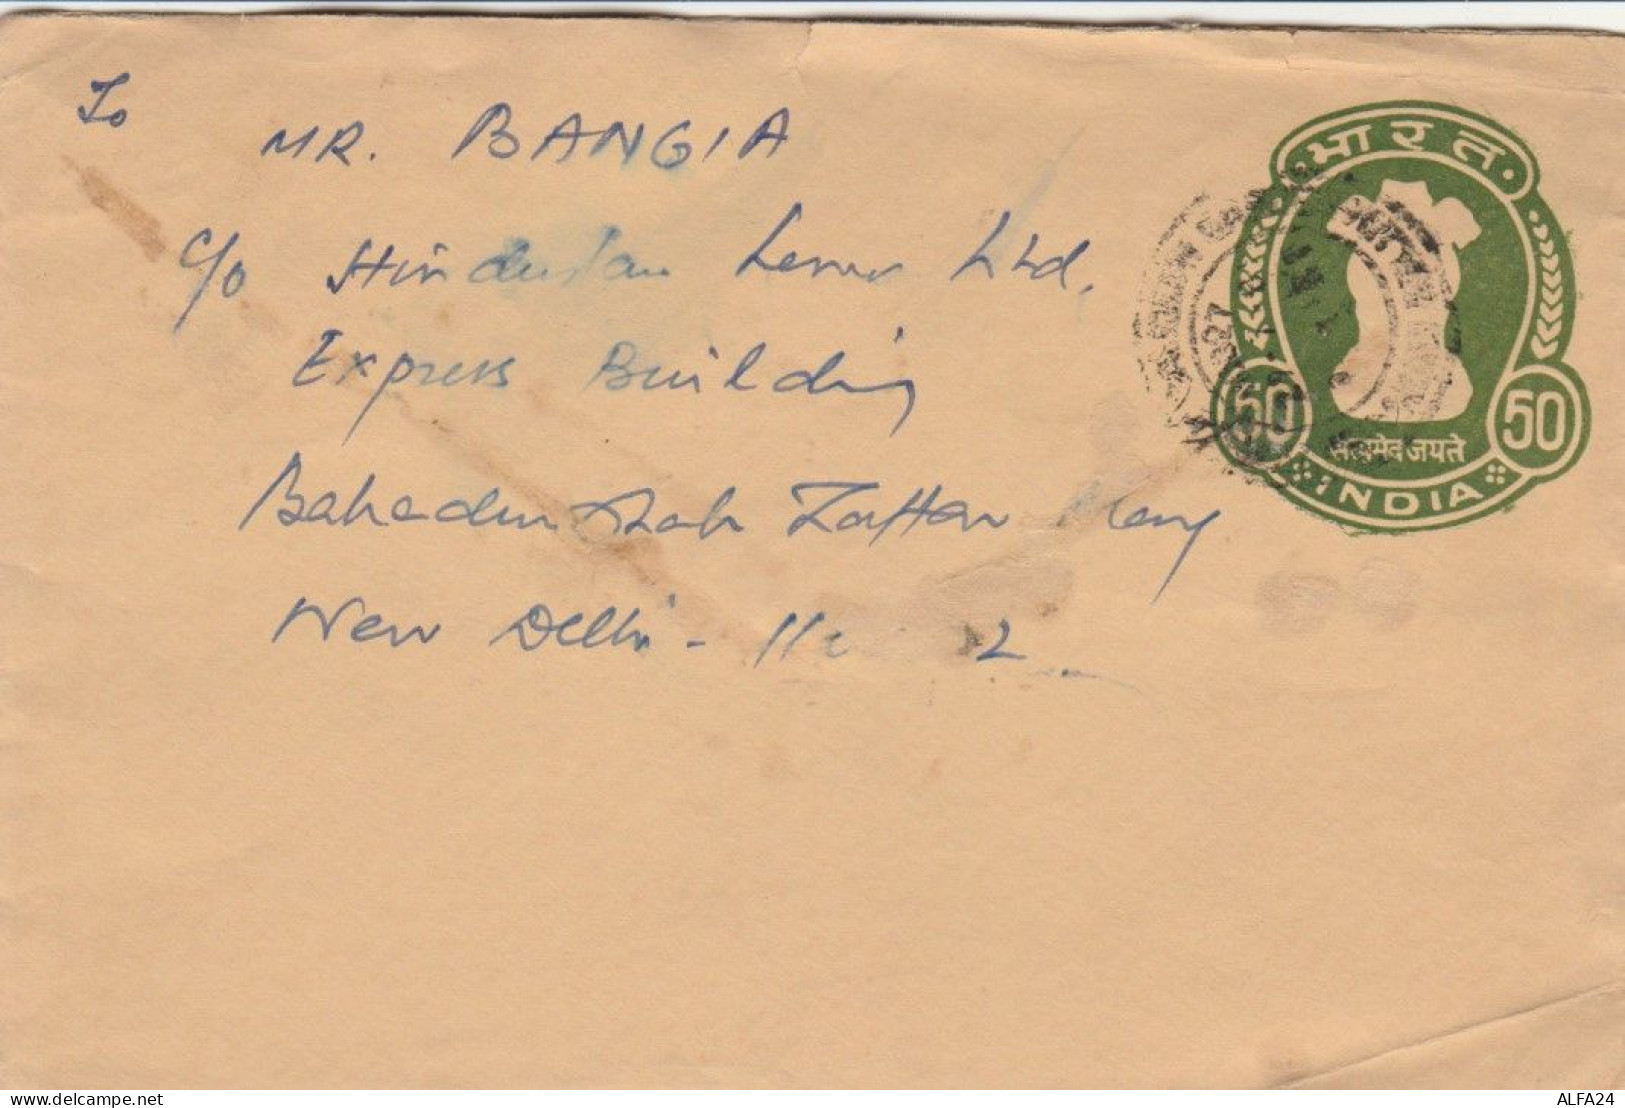 To
MR. BANGIA
c/o Hindustan Lever Ltd.
Express Building
Bahadur Shah Zaffar Marg
New Delhi - 11 2
भारत
50 50
सत्यमेव जयते
INDIA
delcampe.net
ALFA24